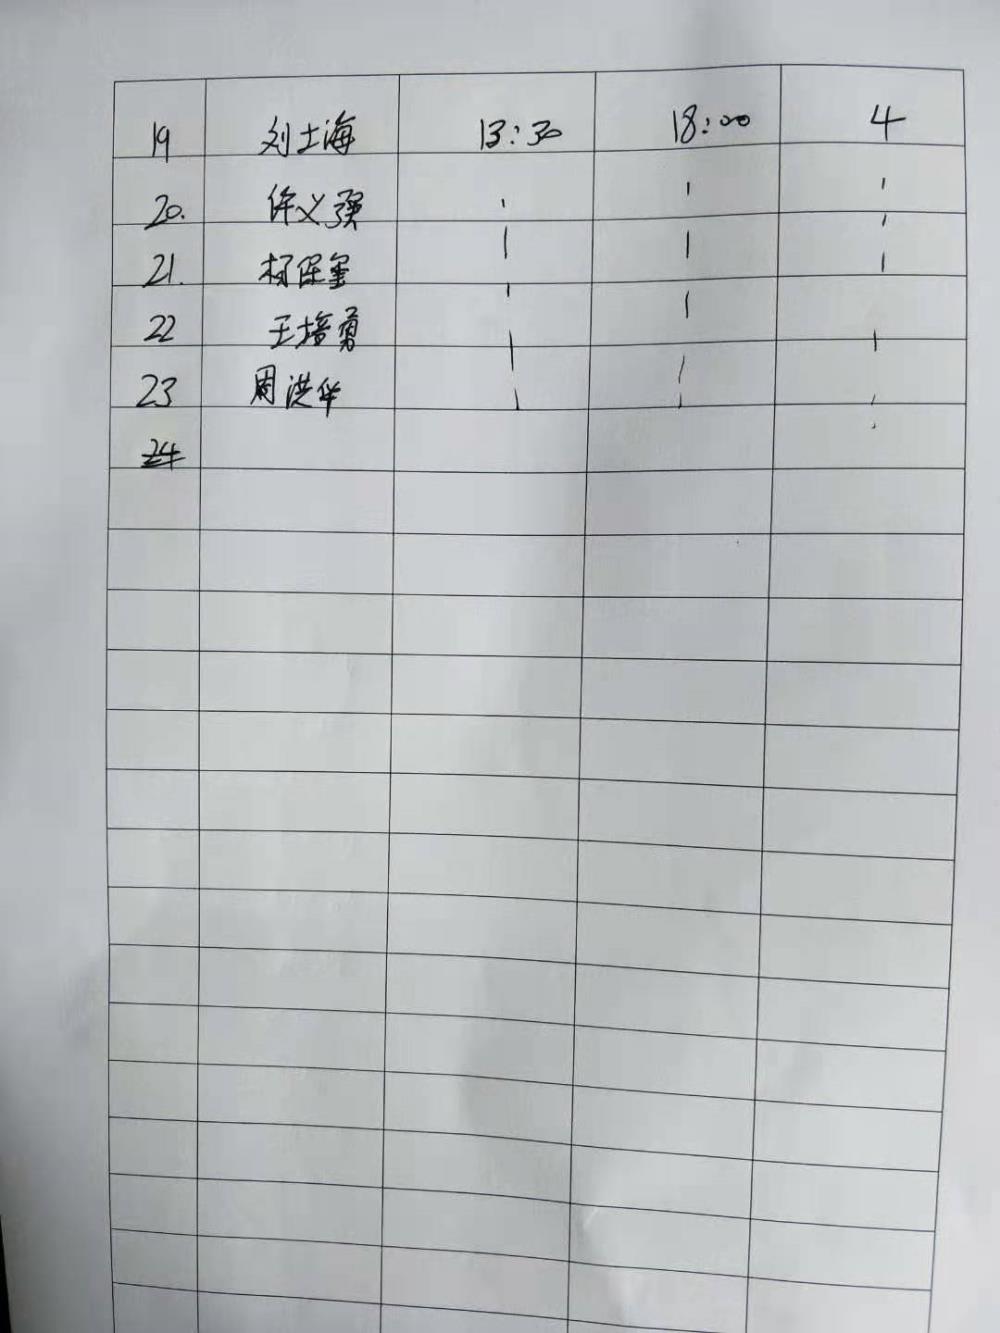 19 刘士海 13:30 18:00 4
20. 徐义强 | | |
21. 杨保玺 | | |
22 王培勇 | | |
23 周洪华 | | |
24